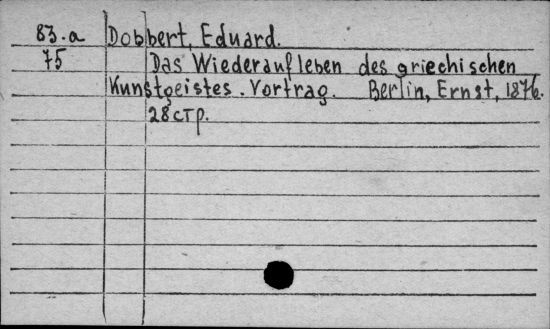 83.a Dobbert, Eduard.
75 Das Wiederaufleben des griechischen
Kunstgeistes. Vortrag. Berlin, Ernst, 1876.
28 стр.